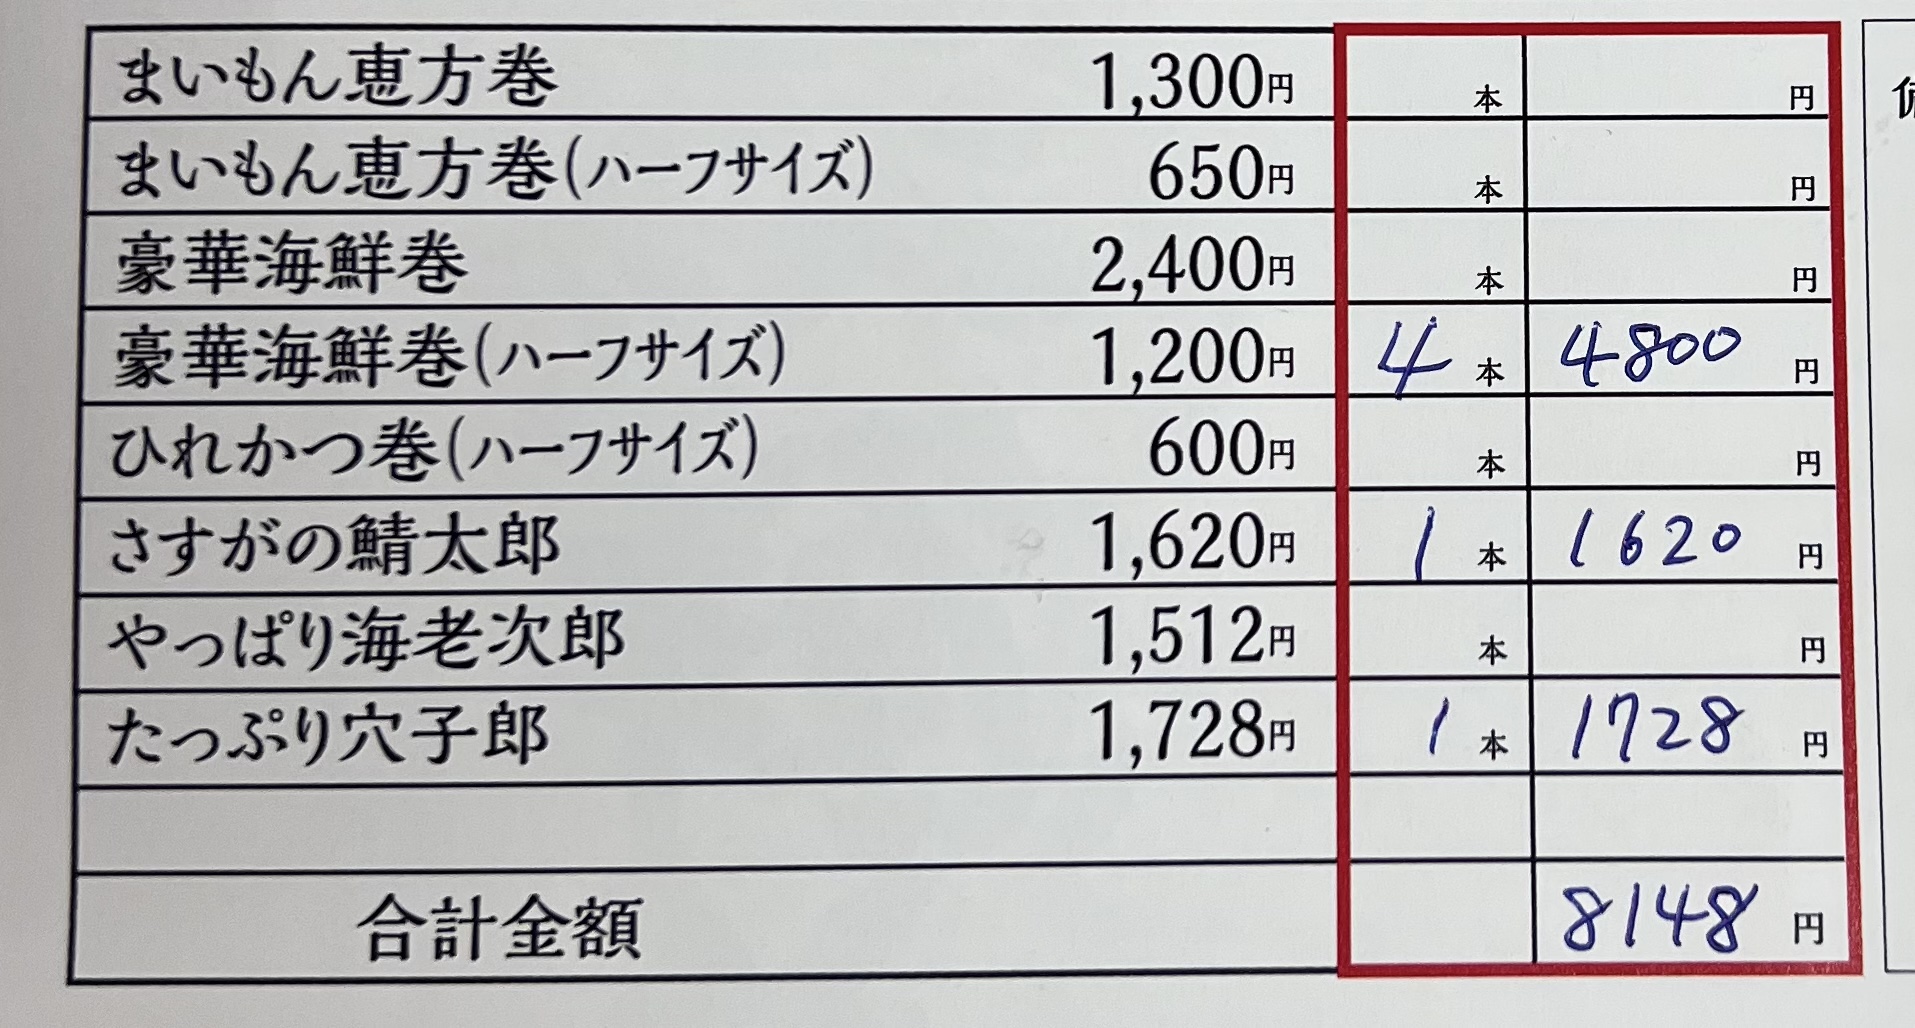 まいもん恵方巻 1,300円 本 円
まいもん恵方巻(ハーフサイズ) 650円 本 円
豪華海鮮巻 2,400円 本 円
豪華海鮮巻(ハーフサイズ) 1,200円 4本 4800円
ひれかつ巻(ハーフサイズ) 600円 本 円
さすがの鯖太郎 1,620円 1本 1620円
やっぱり海老次郎 1,512円 本 円
たっぷり穴子郎 1,728円 1本 1728円
合計金額 8148円